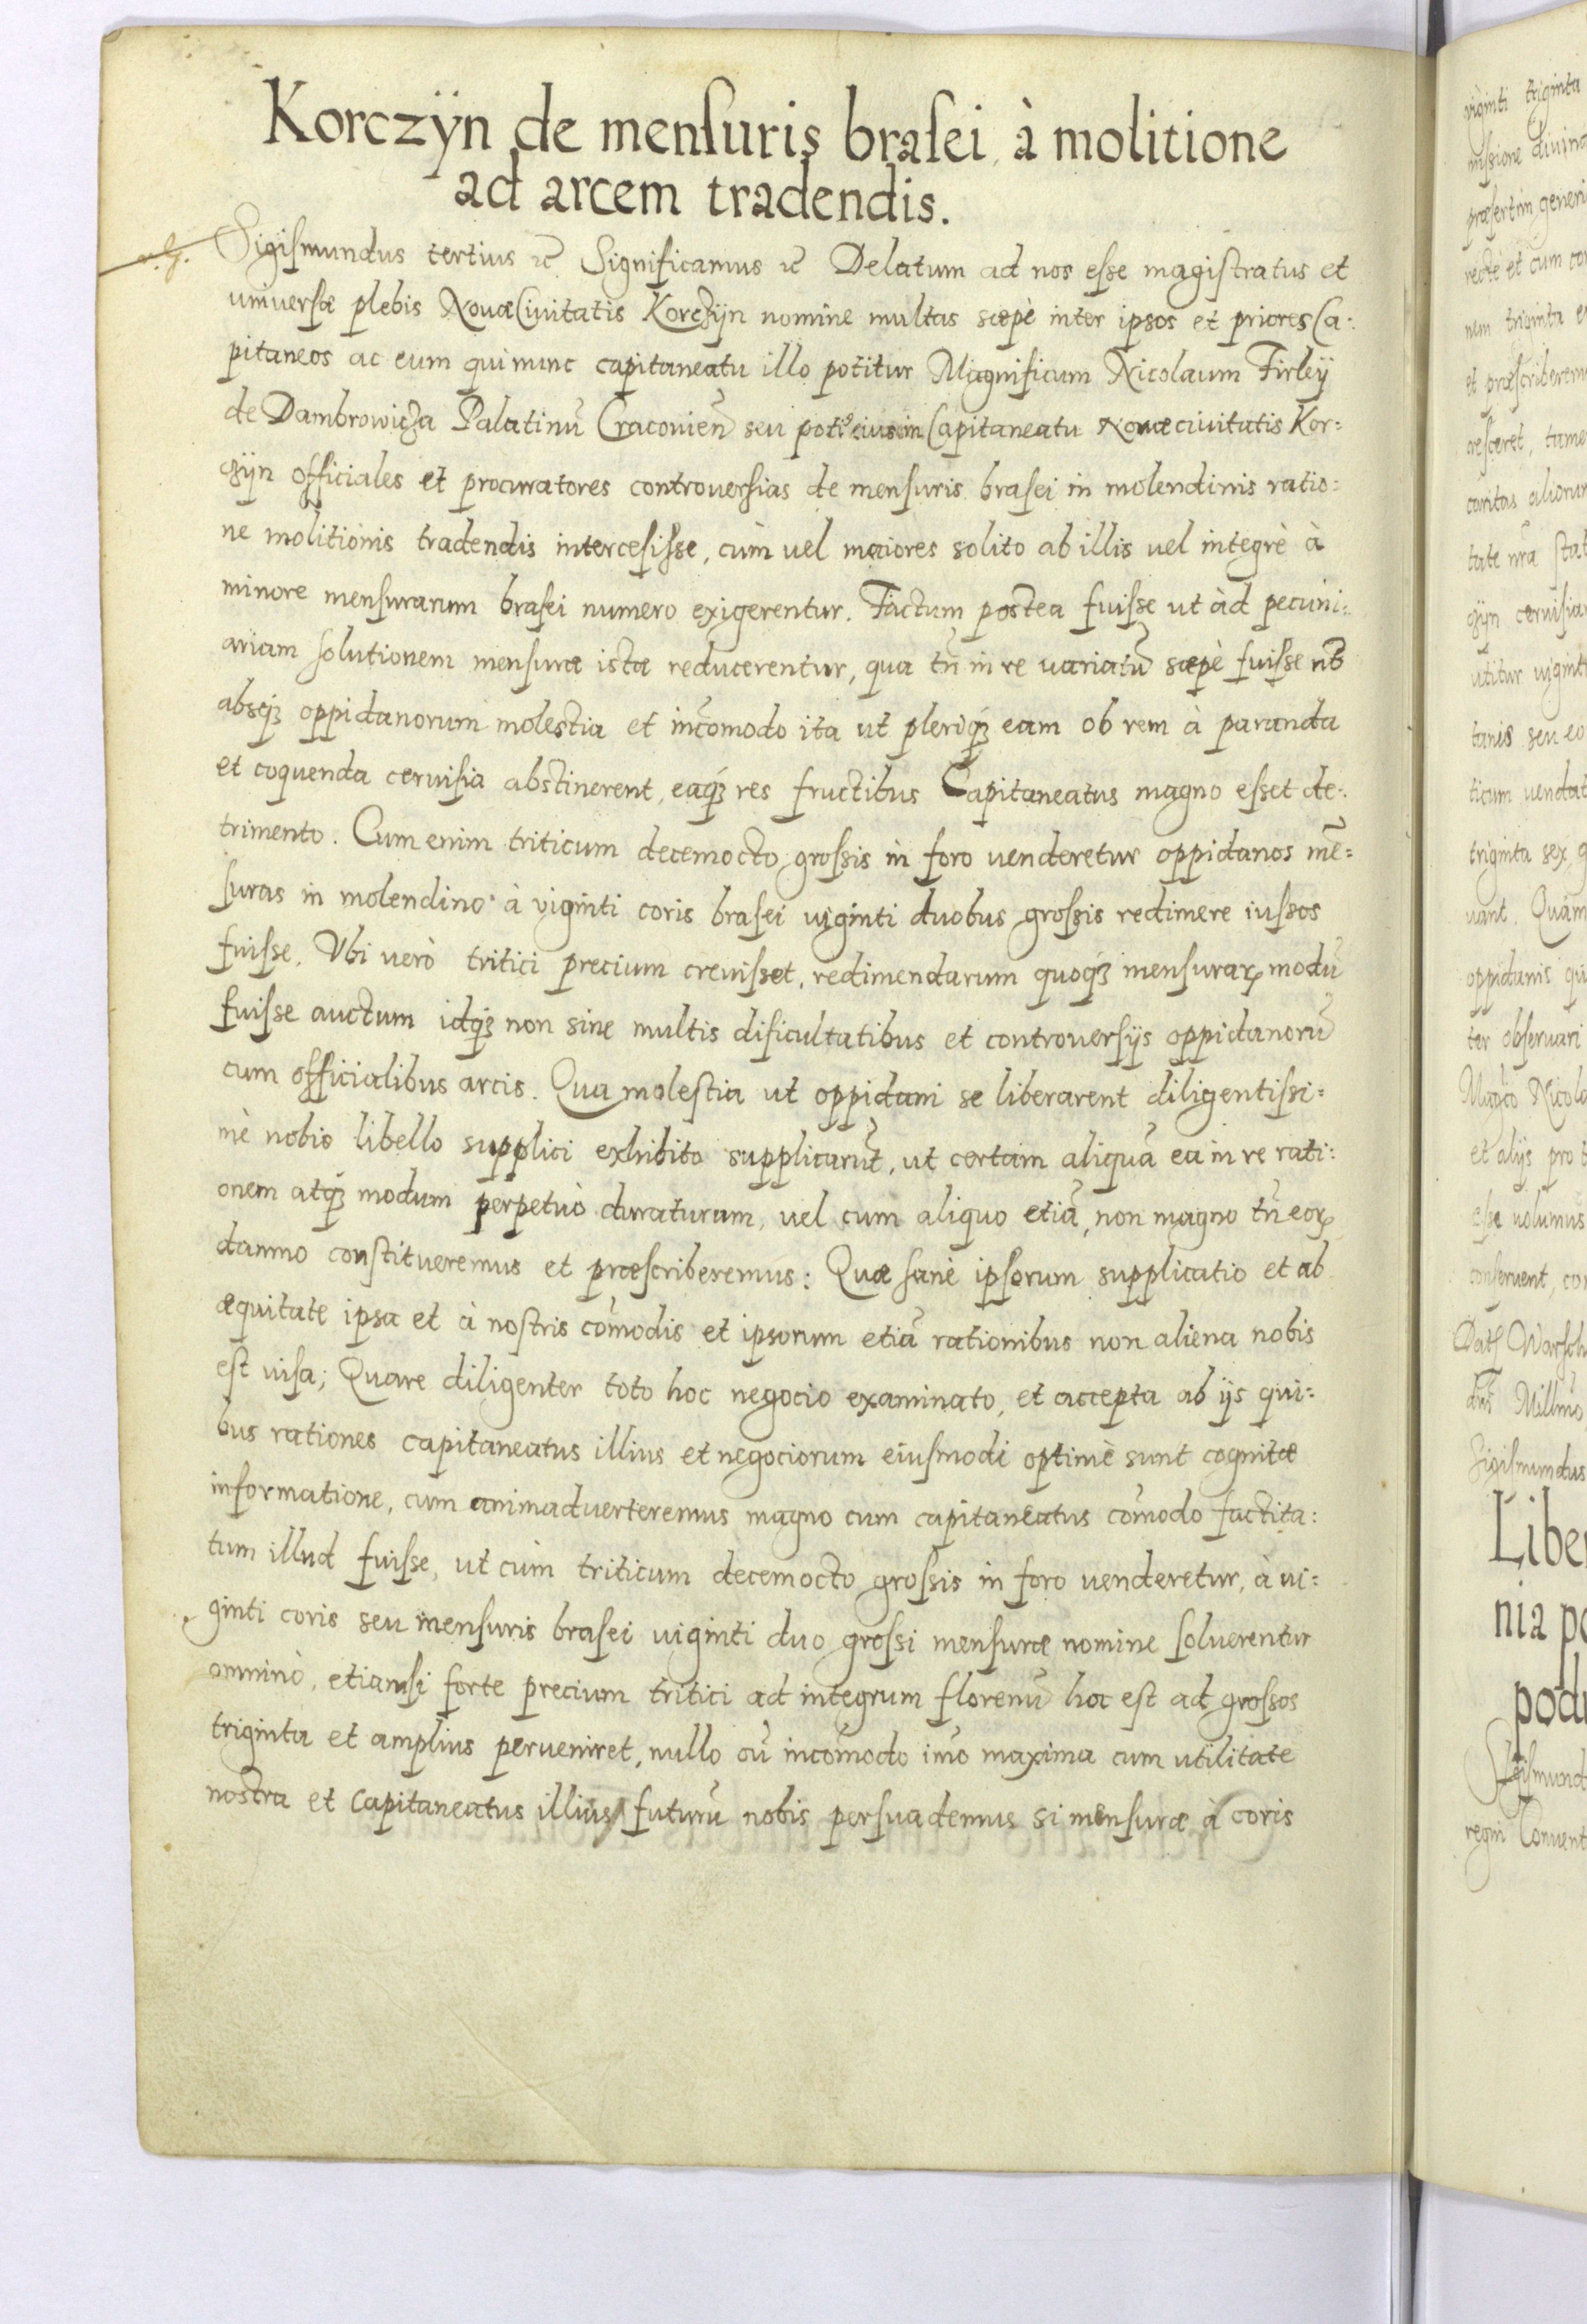 Korczÿn de mensuris brasei, à molitione
ad arcem tradendis.
Sigismundus tertius &c Significamus &c Delatum ad nos esse magistratus et
universæ plebis Novæ Civitatis Korczijn nomine multas sæpè inter ipsos et priores Ca:
pitaneos ac eum qui nunc capitaneatu illo potitur Magnificum Nicolaum Firleÿ
de Dambrowicza Palatinũ Cracovieñ seu poti9 eius in Capitaneatu Novæ civitatis Kor=
czijn officiales et procuratores controversias de mensuris brasei in molendinis ratio=
ne molitionis tradendis intercesisse, cùm vel maiores solito ab illis vel integrè à
minore mensurarum brasei numero exigerentur. Factum postea fuisse ut ad pecuni:
ariam solutionem mensuræ istæ reducerentur, qua tñ in re variatũ sæpè fuisse nõ
absq3 oppidanorum molestia et incõmodo ita ut pleriq3 eam ob rem à paranda
et coquenda cervisia abstinerent, eaq3 res fructibus Capitaneatus magno esset de:
trimento. Cum enim triticum decemocto grossis in foro venderetur oppidanos mẽ=
suras in molendino à viginti coris brasei viginti duobus grossis redimere iussos
fuisse. Vbi verò tritici precium crevisset, redimendarum quoq3 mensurarꝝ modũ
fuisse auctum idq3 non sine multis dificultatibus et controversijs oppidanorũ
cum officialibus arcis. Qua molestia ut oppidani se liberarent diligentissi=
mè nobis libello supplici exhibito supplicarũt, ut certam aliquã ea in re rati:
onem atq3 modum perpetuò duraturum, vel cum aliquo etiã, non magno tñ eorꝝ
damno constitueremus et præscriberemus: Quæ sanè ipsorum supplicatio et ab
æquitate ipsa et à nostris cõmodis et ipsorum etiã rationibus non aliena nobis
est visa; Quare diligenter toto hoc negocio examinato, et accepta ab ijs qui=
bus rationes capitaneatus illius et negociorum eiusmodi optimè sunt cognitæ
informatione, cum animadverteremus magno cum capitaneatus cõmodo factita:
tum illud fuisse, ut cùm triticum decemocto grossis in foro venderetur, à vi=
ginti coris seu mensuris brasei viginti duo grossi mensuræ nomine solverentur
omninò, etiamsi forte precium tritici ad integrum florenũ hoc est ad grossos
triginta et amplius perveniret, nullo cũ incõmodo imò maxima cum utilitate
nostra et capitaneatus illius futurũ nobis persuademus si mensuræ à coris
viginti triginta
missione divina
præsertim generi
rectè et cum
nem triginta
et præscriberem
cresceret, tame
caritas aliorum
tate nrã stat
czijn cervisiam
utitur viginti
tanis seu eo
ticum vendat
triginta sex g
vant. Quam
oppidanis qui
ter observari
Magco Nicola
et alijs pro t
esse volumus
conservent, co
Dat Warsch
dni Millmo
Sigismundus
Liber
nia po
podu
Sigismund
regni Convent